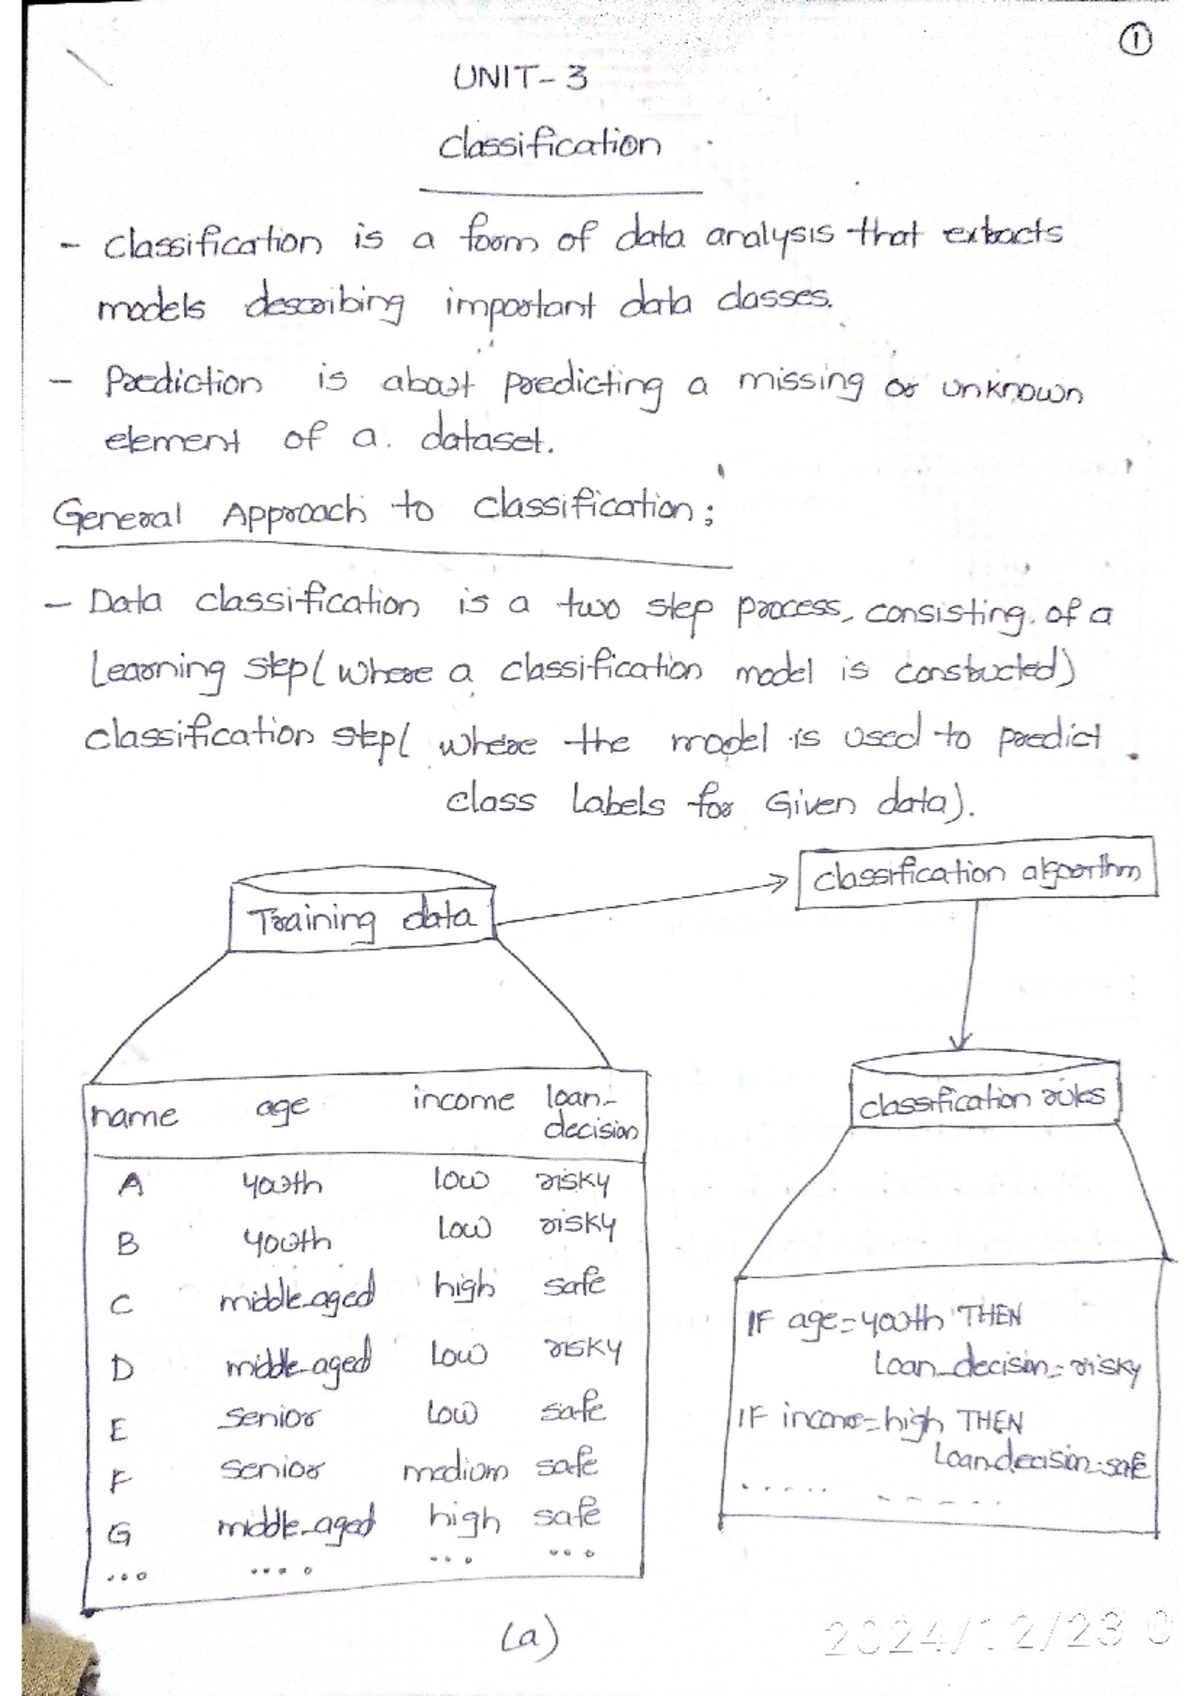 1
UNIT-3
classification
- classification is a form of data analysis that extracts
models describing important data classes.
- Prediction is about predicting a missing or unknown
element of a. dataset.
General Approach to classification;
- Data classification is a two step process, consisting. of a
Learning step( where a classification model is constructed)
classification step( where the model is used to predict
class Labels for Given data).
Training data
classification algorithm
classification rules
name age income loan-
decision
A youth low risky
B youth low risky
C middle-aged high safe
D middle-aged low risky
E senior low safe
F senior medium safe
G middle-aged high safe
... .... ... ...
IF age=youth THEN
Loan_decision=risky
IF income=high THEN
Loandecision=safe
..... ......
(a)
2024/12/23 0